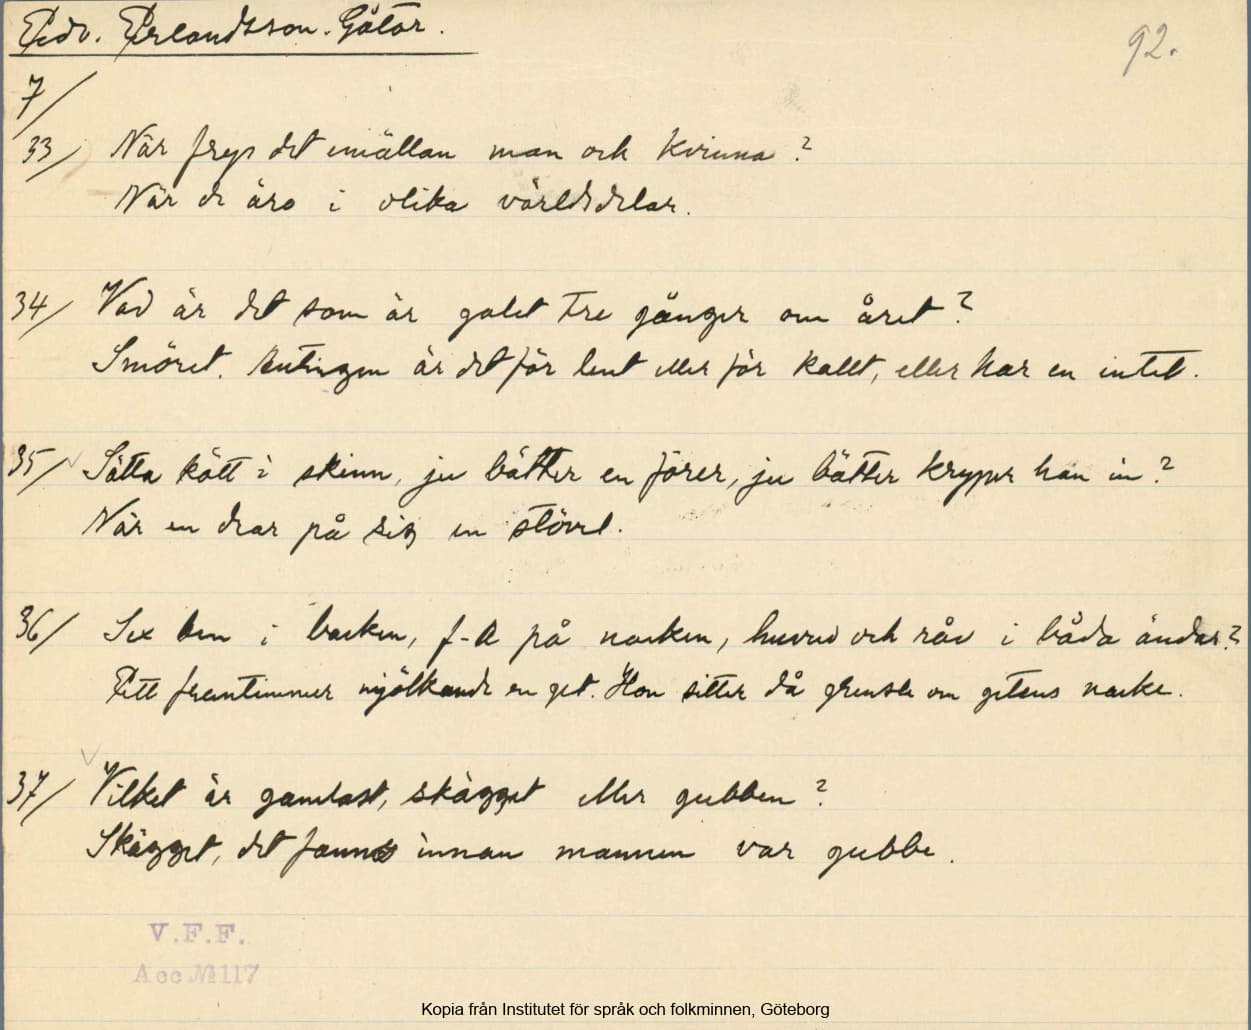 Edv. Erlandsson. Götar.
92.
7/
33/ När frys det imällan man och kvinna?
När de äro i olika världsdelar.
34/ Vad är det som är galet tre gånger om året?
Smöret. Antingen är det för lent eller för kallt, eller har en intet.
35/ Sätta kött i skinn, ju bätter en förer, ju bätter kryper han in?
När en drar på sig en stövel.
36/ Sex ben i backen, f-a på nacken, huvud och röv i båda ändar?
Ett fruntimmer mjölkande en get. Hon sitter då grensle om getens nacke.
37/ Vilket är gamlast, skägget eller gubben?
Skägget, det fanns innan mannen var gubbe.
V.F.F.
Acc № 117
Kopia från Institutet för språk och folkminnen, Göteborg